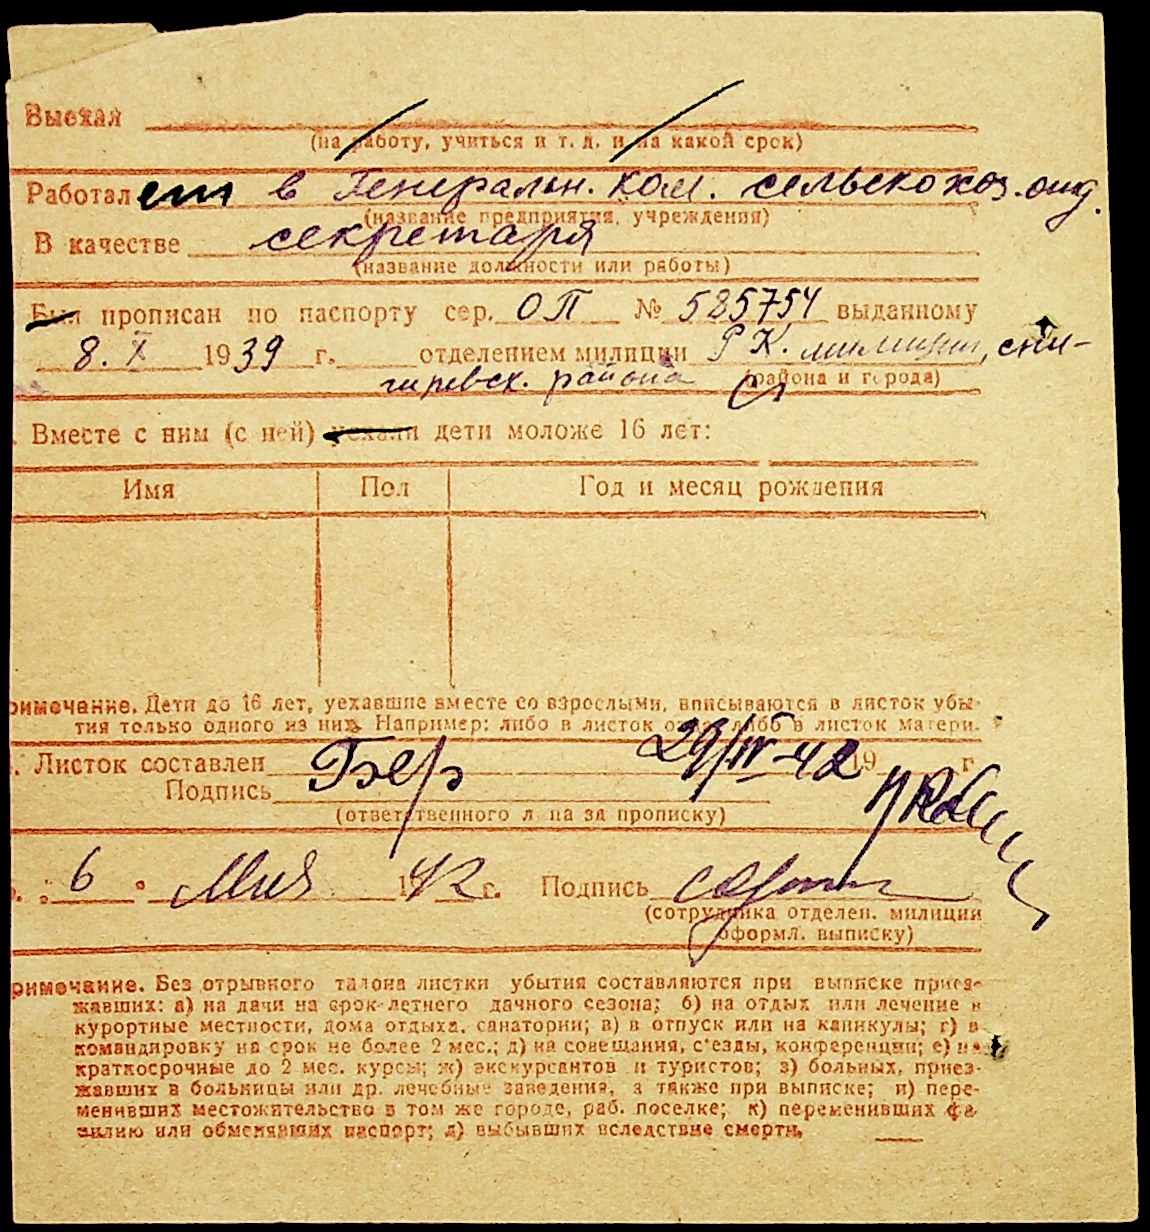 Выехал
(на работу, учиться и т. д. и на какой срок)
Работает в Генеральн. ком. сельскохоз.
(название предприятия, учреждения)
В качестве секретаря
(название должности или работы)
Был прописан по паспорту сер. ОП № 585754 выданному
8. X 1939 г. отделением милиции Р К. милиции, сни-
гиревск. района (района и города)
Вместе с ним (с ней) уехали дети моложе 16 лет:
Имя Пол Год и месяц рождения
римечание. Дети до 16 лет, уехавшие вместе со взрослыми, вписываются в листок убы-
тия только одного из них. Например: либо в листок отца, либо в листок матери.
Листок составлен 29/IV-42 19 г
Подпись
(ответственного л па за прописку)
6 Мая 1942 г. Подпись
(сотрудника отделен. милиции
оформл. выписку)
римечание. Без отрывного талона листки убытия составляются при выписке приез-
жавших: а) на дачи на срок летнего дачного сезона; б) на отдых или лечение в
курортные местности, дома отдыха, санатории; в) в отпуск или на каникулы; г) в
командировку на срок не более 2 мес.; д) на совещания, с'езды, конференции; е) на
краткосрочные до 2 мес. курсы; ж) экскурсантов и туристов; з) больных, приез-
жавших в больницы или др. лечебные заведения, а также при выписке; и) пере-
менивших местожительство в том же городе, раб. поселке; к) переменивших фа-
милию или обменявших паспорт; л) выбывших вследствие смерти.